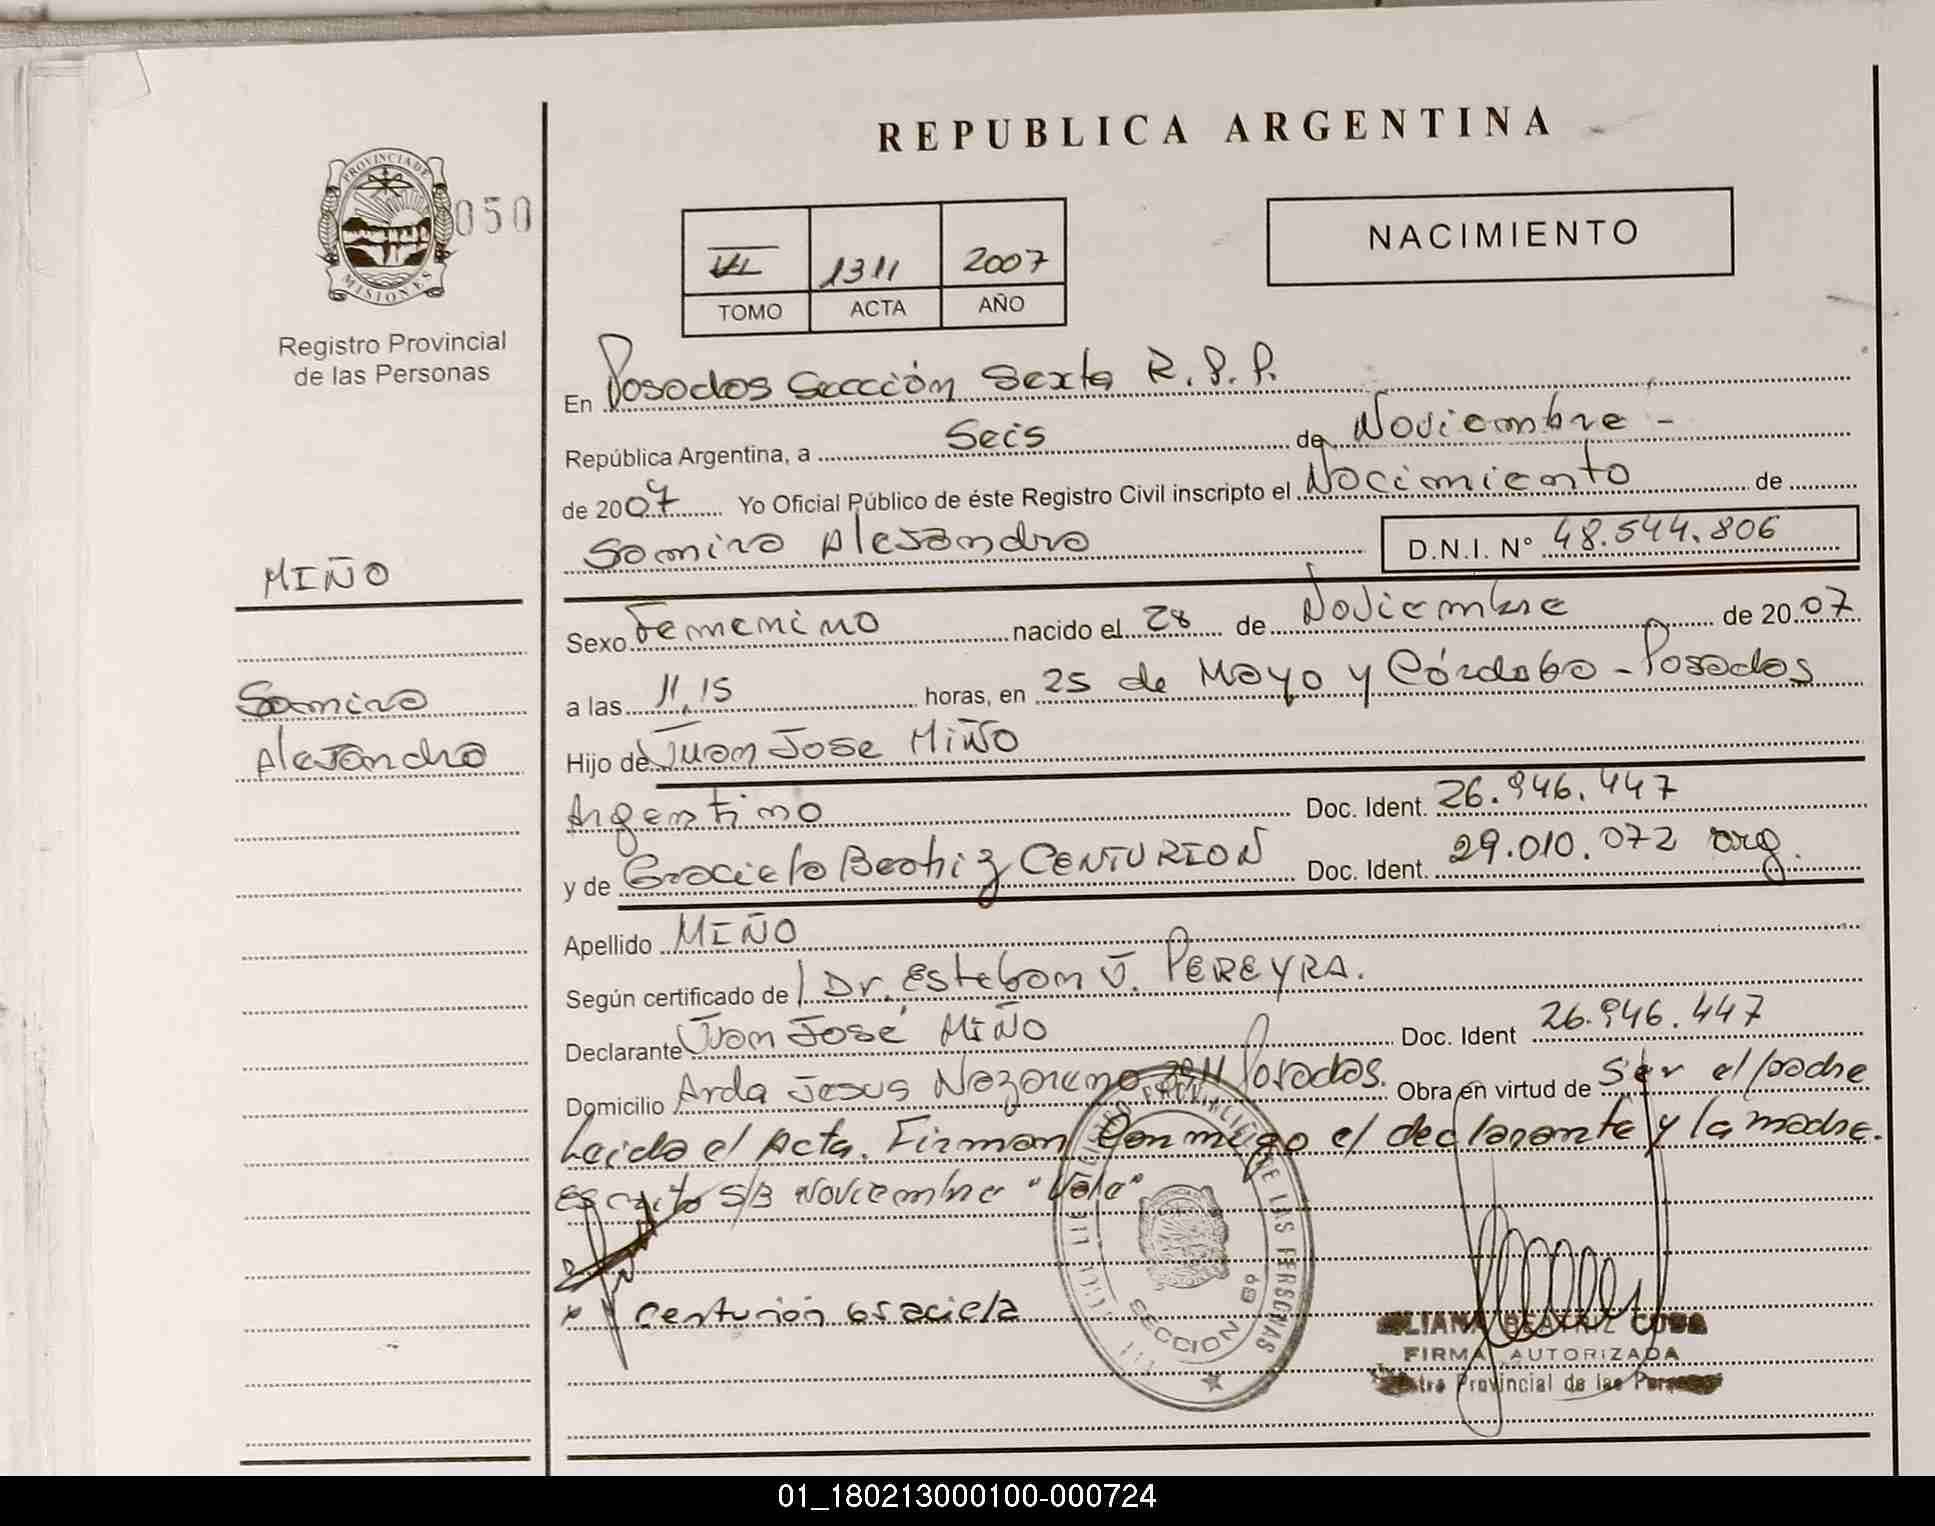 REPUBLICA ARGENTINA
PROVINCIA DE
MISIONES
050
Registro Provincial
de las Personas
VI 1311 2007
TOMO ACTA AÑO
NACIMIENTO
En Posadas Sección Sexta R.P.P.
República Argentina, a Seis de Noviembre -
de 2007 Yo Oficial Público de éste Registro Civil inscripto el Nacimiento de
Samira Alejandra D.N.I. N° 48.544.806
MIÑO
Samira
Alejandra
Sexo Femenino nacido el 28 de Noviembre de 2007
a las 11,15 horas, en 25 de Mayo y Córdoba - Posadas
Hijo de Juan Jose MiÑO
Argentino Doc. Ident. 26.946.447
y de Graciela Beatriz CENTURION Doc. Ident. 29.010.072 arg.
Apellido MIÑO
Según certificado de Dr. Esteban J. PEREYRA.
Declarante Juan José MiÑO Doc. Ident 26.946.447
Domicilio Avda Jesus Nazareno Posadas. Obra en virtud de Ser el padre
Leida el Acta. Firman Conmigo el declarante y la madre.
Escrito S/B Noviembre "Vale"
x Centurión Graciela
PROVINCIAL DE LAS PERSONAS
SECCION 6ª
BEATRIZ
FIRMA AUTORIZADA
Provincial de las
01_180213000100-000724